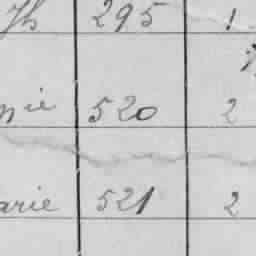 295 1
520 2
arie 521 2